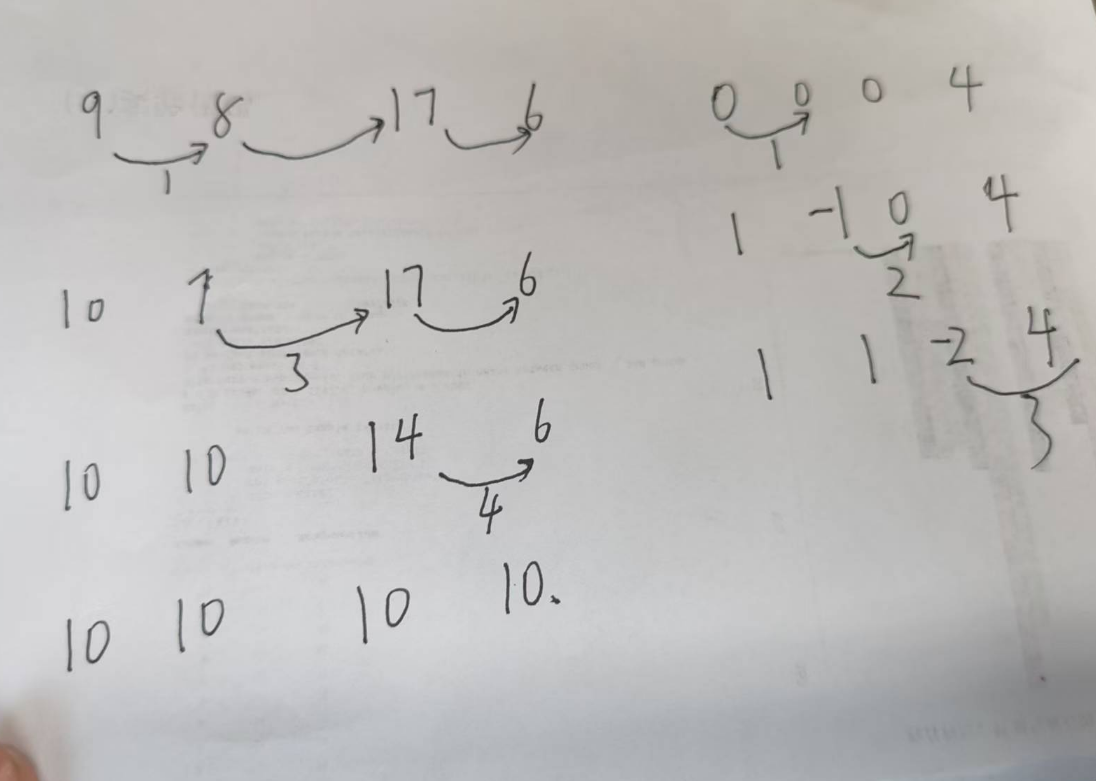 9 8 17 6
1
10 7 17 6
3
10 10 14 6
4
10 10 10 10.
0 0 0 4
1
1 -1 0 4
2
1 1 -2 4
3